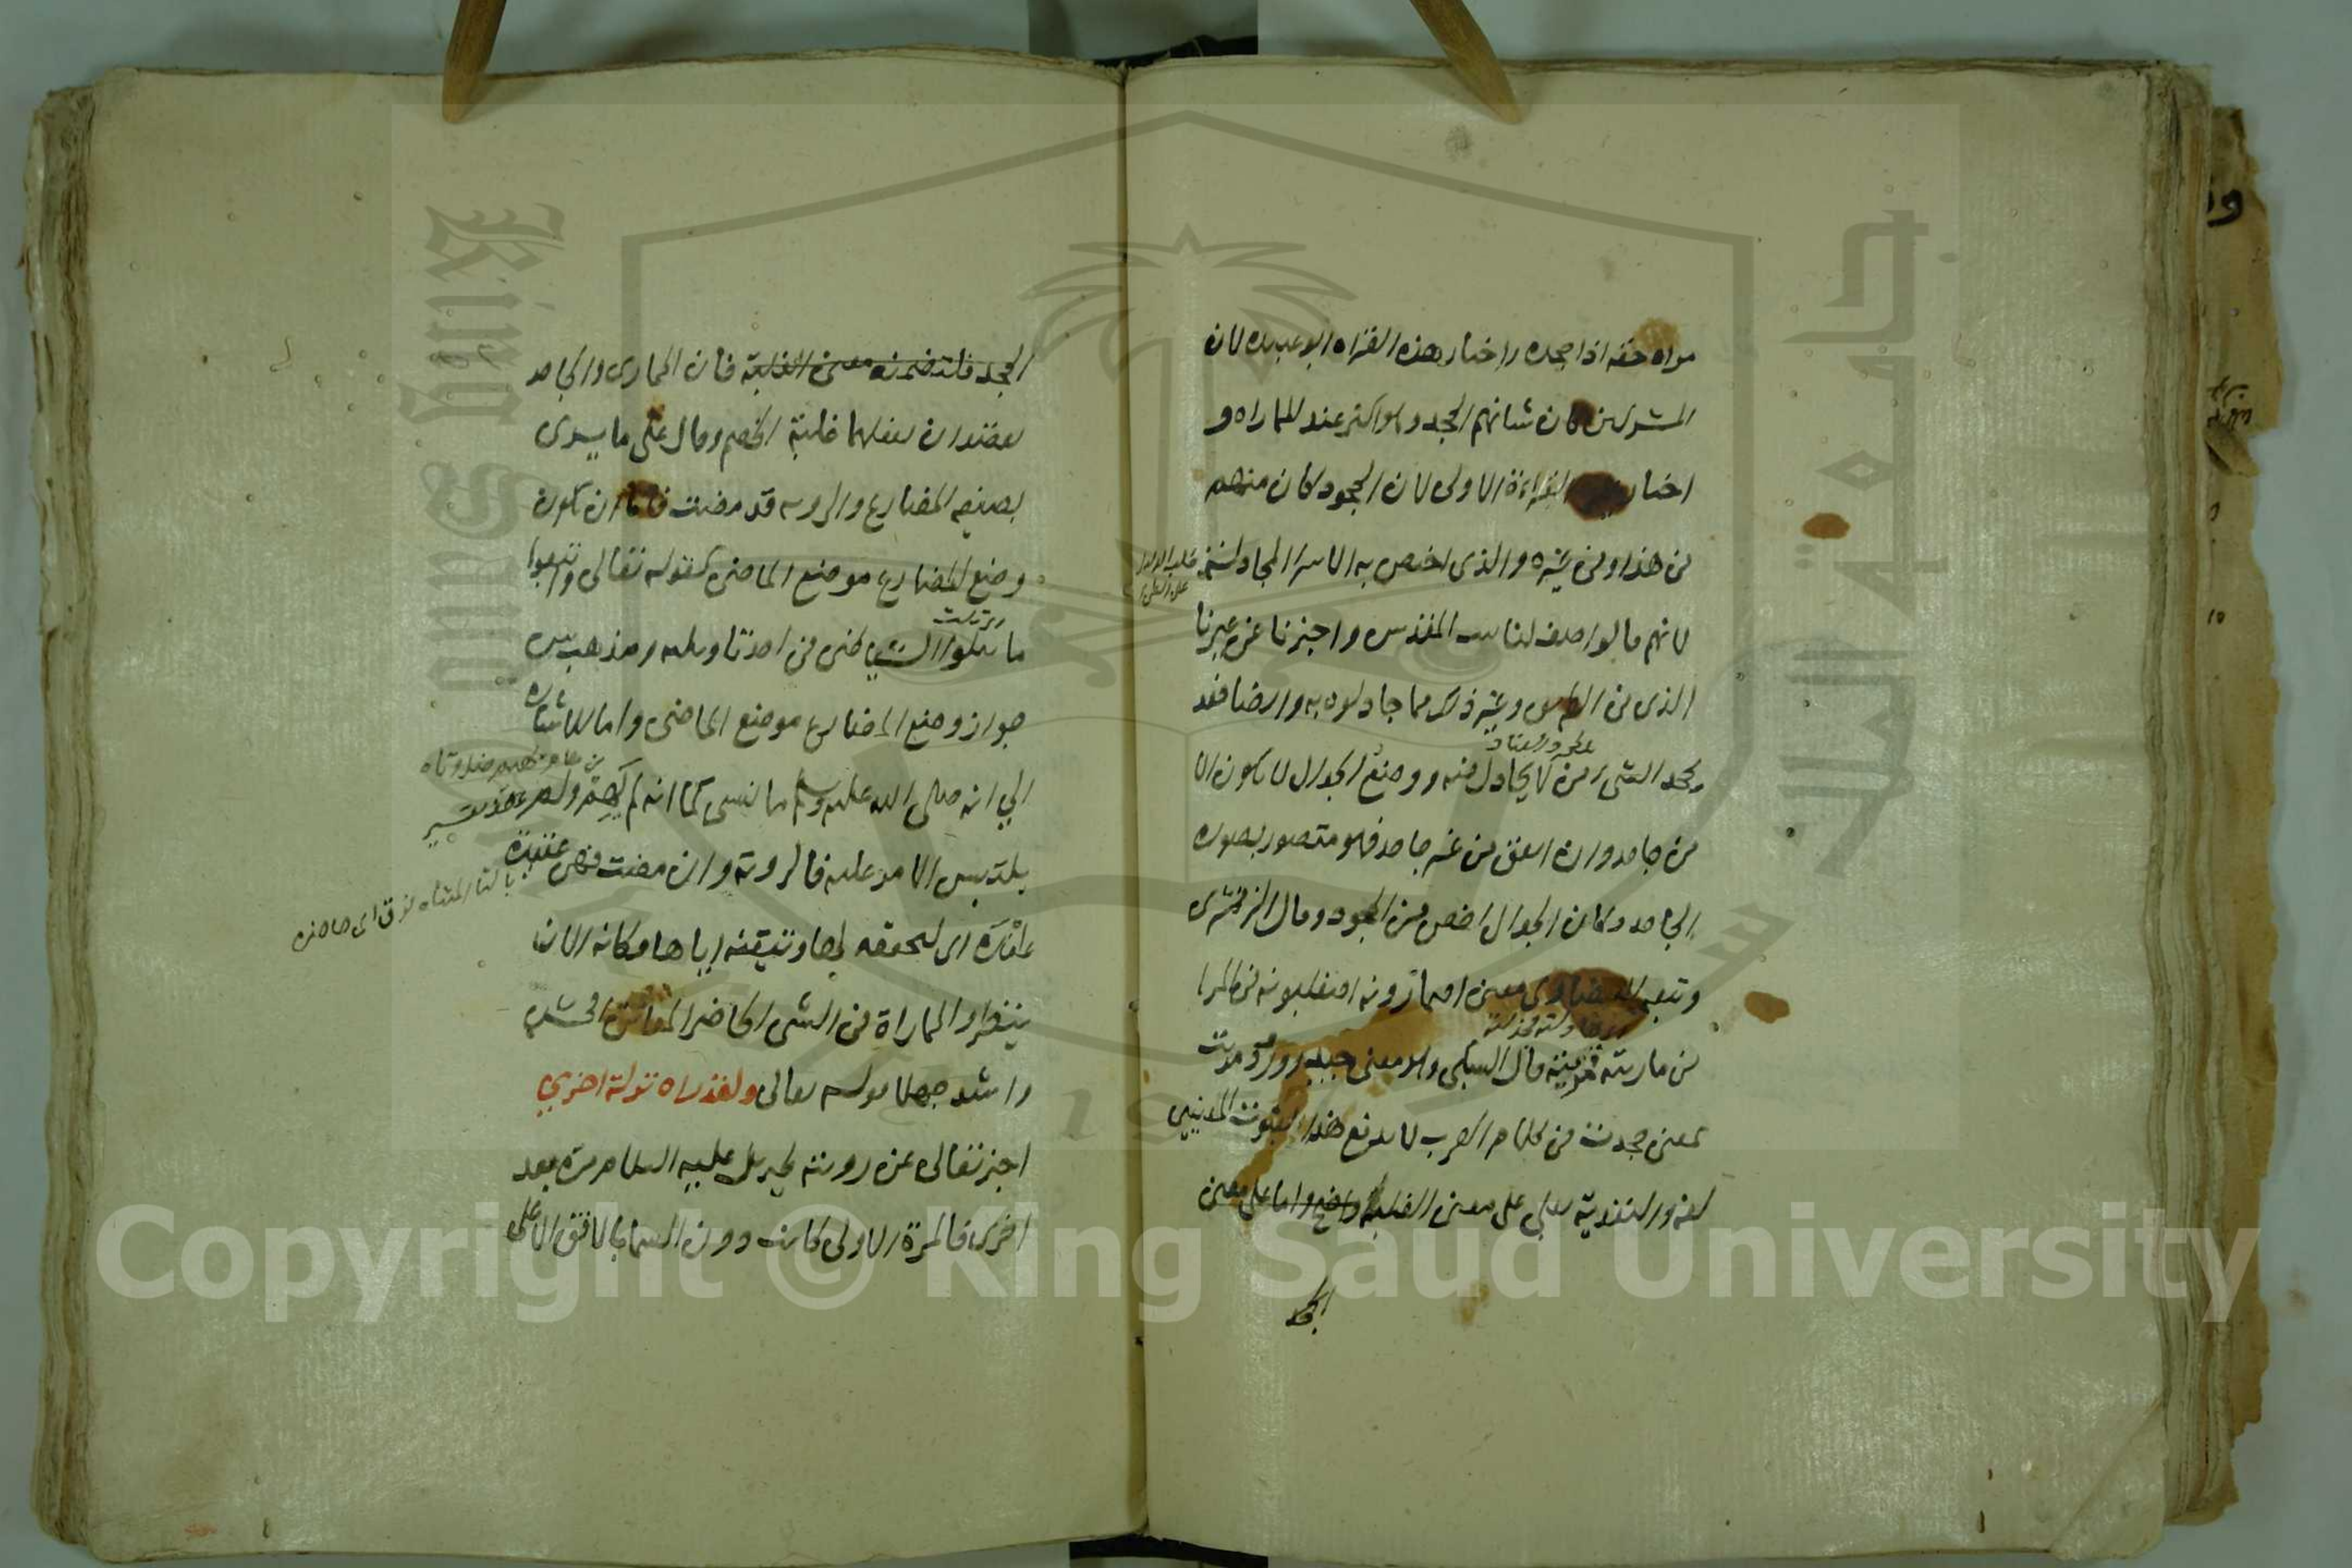 مراه حقه اذا جحده واختار هذه القراه ابو عبيده لان
المشركين كان شانهم الجحد وهو اكثر عند المماراه و
اختار القراءة الاولى لان الجحود كان منهم
في هذا وفي غيره والذي اختص به الاسرا المجادلة
لانهم قالوا صف لنا بيت المقدس واخبرنا عن عيرنا
الذي في الطريق وغير ذلك مما جادلوه به وايضا فقد
يجحد الشي من لا يجادل فيه ووضع الجدال لا يكون الا
من جاحد وان اتفق من غير جاحد فهو متصور بصورة
الجاحد وكان الجدال اخص من الجحود وقال الزمخشري
وتبعه البيضاوي معنى افتمارونه افتغلبونه في المرا
من ماريته فمريته قال السبكي ولا معنى
بمعنى جحدت في كلام العرب لا يدفع هذا لثبوت المعنيين
لغة والتعدية بعلى على معنى الغلبة واضح واما على معنى
الجحد
الجحد فلتضمنه معنى الغلبة فان المماري والجاحد
يقصدان بفعلهما غلبة الخصم وقال على ما يرى
بصيغة المضارع والرويه قد مضت فاما ان يكون
وضع المضارع موضع الماضي كقوله تعالى واتبعوا
ما تتلوا الشياطين في احد تاويليه ومذهب س
جواز وضع المضارع موضع الماضي واما للاشارة
الي انه صلى الله عليه وسلم ما نسى كما انه لم يهم ولم
يلتبس الامر عليه فالروية وان مضت فهي عتيدة
عنده اي لتحققه لها وتيقنه اياها وكانه الان
ينظر والمماراة في الشي الحاضر افحش
واشد جهلا قوله تعالى ولقد راه نزلة اخري
اخبر تعالى عن رويته لجبريل عليه السلام مرة بعد
اخرى فالمرة الاولى كانت دون السما بالافق الاعلى
بالتا المثناه فوق اي حاضره